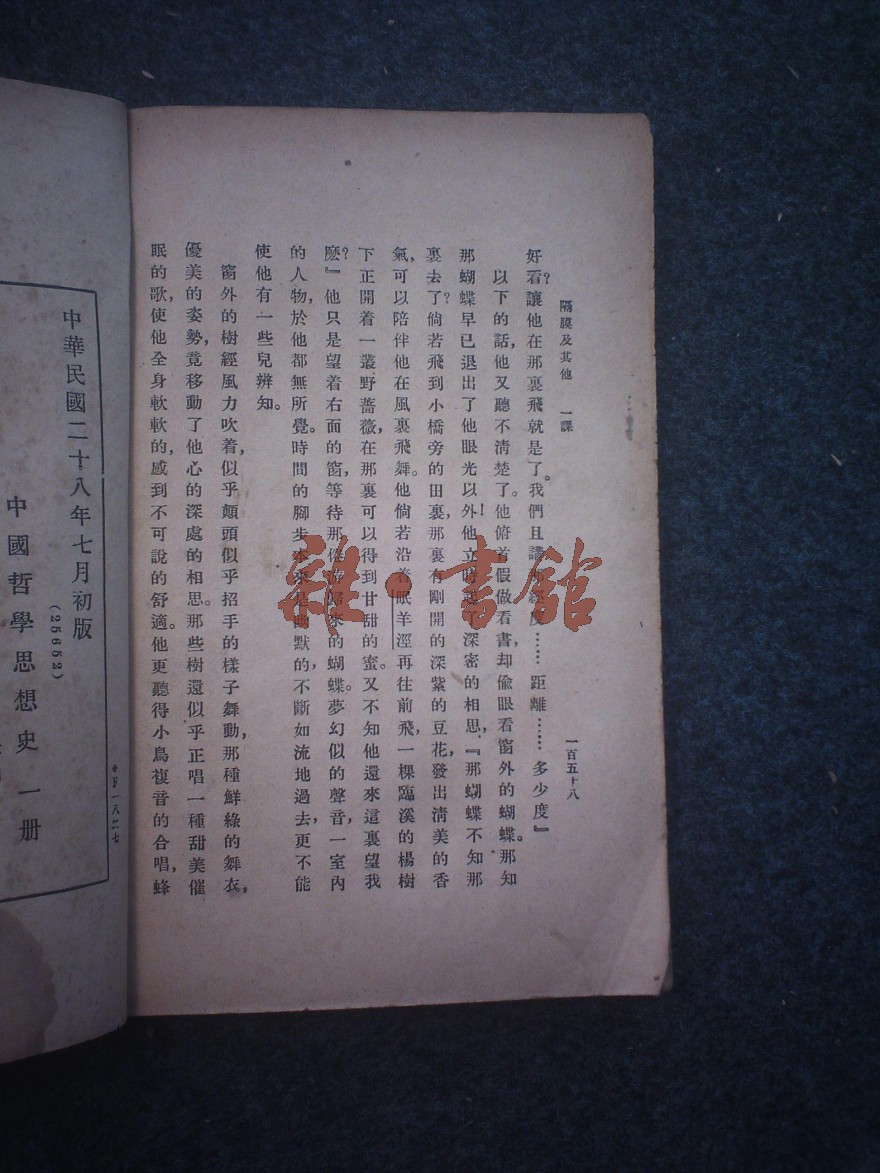 隔膜及其他　一課
一百五十八
好看？讓他在那裏飛就是了。我們且講　經度……距離……多少度』
以下的話，他又聽不清楚了。他俯首假做看書，却偷眼看窗外的蝴蝶。那知
那蝴蝶早已退出了他眼光以外！他立時　了深密的相思，『那蝴蝶不知那
裏去了？倘若飛到小橋旁的田裏，那裏有剛開的深紫的豆花，發出清美的香
氣，可以陪伴他在風裏飛舞。他倘若沿着眠羊涇再往前飛，一棵臨溪的楊樹
下正開着一叢野薔薇，在那裏可以得到甘甜的蜜。又不知他還來這裏望我
麽？』他只是望着右面的窗，等待那　歸來的蝴蝶。夢幻似的聲音，一室內
的人物，於他都無所覺。時間的脚步本來是幽默的，不斷如流地過去，更不能
使他有一些兒辨知。
窗外的樹經風力吹着，似乎顛頭似乎招手的樣子舞動，那種鮮綠的舞衣，
優美的姿勢，竟移動了他心的深處的相思。那些樹還似乎正唱一種甜美催
眠的歌，使他全身軟軟的，感到不可說的舒適。他更聽得小鳥複音的合唱，蜂
中華民國二十八年七月初版
(25652)
＊F一八二七
中國哲學思想史一册
雜·書館